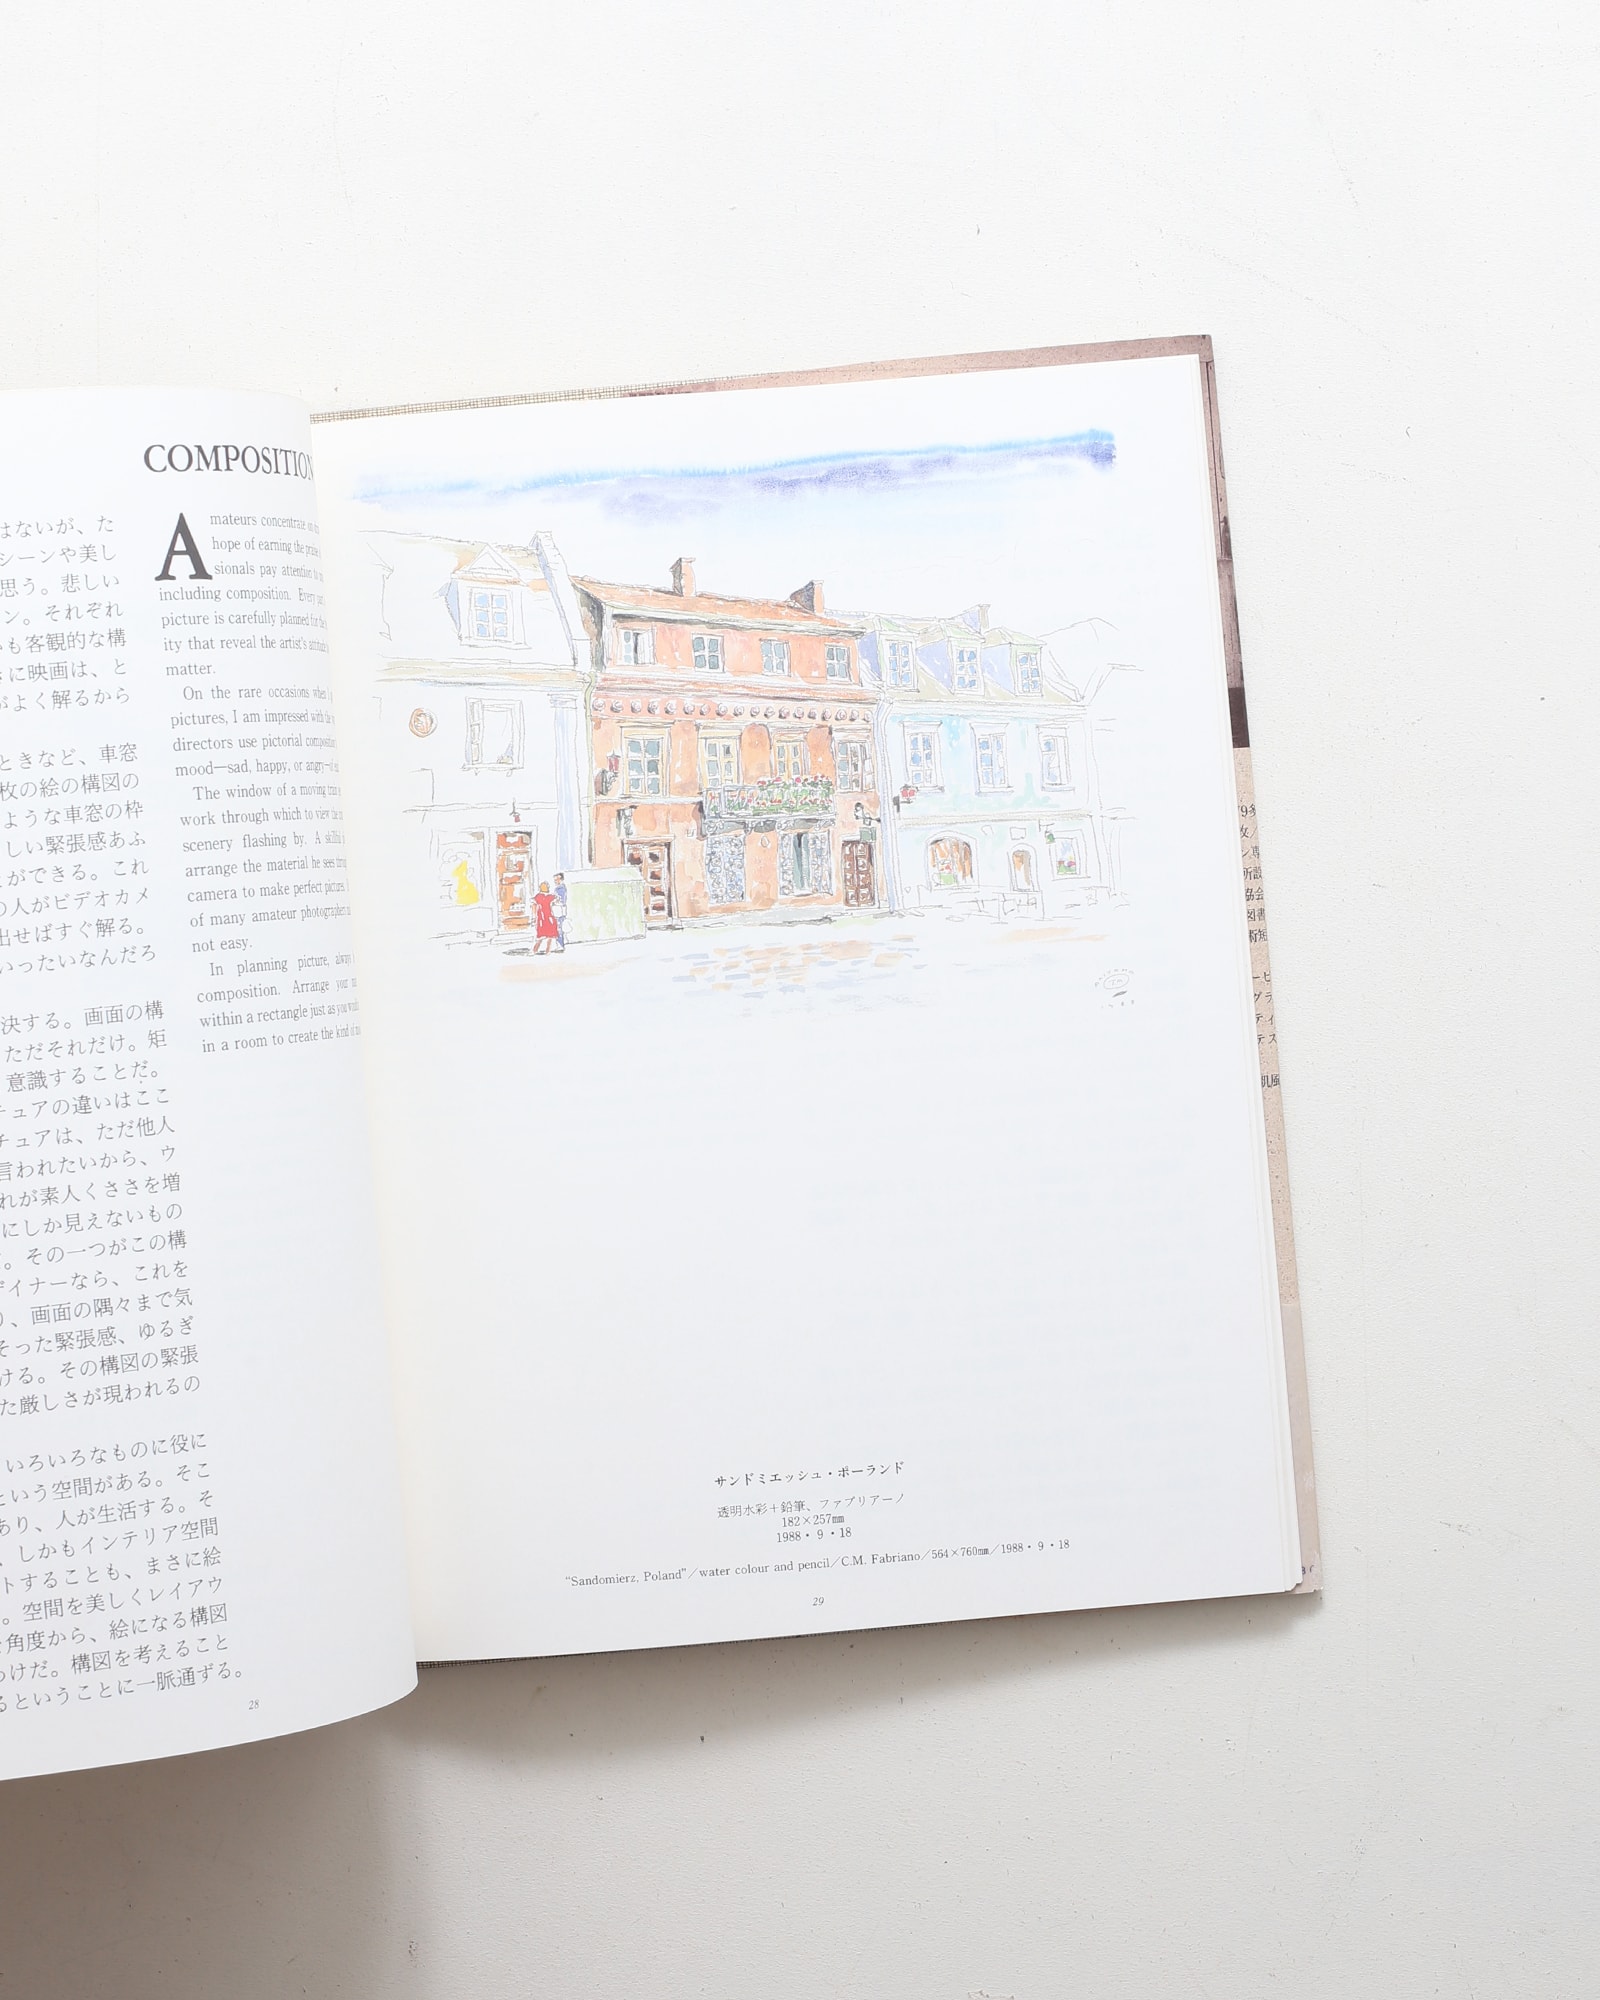 COMPOSITION
はないが、た
シーンや美し
思う。悲しい
ン。それぞれ
も客観的な構
に映画は、と
がよく解るから
ときなど、車窓
枚の絵の構図の
ような車窓の枠
しい緊張感あふ
ができる。これ
の人がビデオカメ
出せばすぐ解る。
いったいなんだろ
決する。画面の構
ただそれだけ。矩
意識することだ。
チュアの違いはここ
チュアは、ただ他人
言われたいから、ウ
れが素人くささを増
にしか見えないもの
。その一つがこの構
デイナーなら、これを
り、画面の隅々まで気
そった緊張感、ゆるぎ
ける。その構図の緊張
た厳しさが現われるの
いろいろなものに役に
という空間がある。そこ
あり、人が生活する。そ
、しかもインテリア空間
トすることも、まさに絵
。空間を美しくレイアウ
角度から、絵になる構図
わけだ。構図を考えること
るということに一脈通ずる。
Amateurs concentrate on
hope of earning the praise
sionals pay attention to
including composition. Every
picture is carefully planned for the
ity that reveal the artist's attitude
matter.
On the rare occasions when I
pictures, I am impressed with the
directors use pictorial composition
mood—sad, happy, or angry—
The window of a moving train
work through which to view the
scenery flashing by. A skillful
arrange the material he sees through
camera to make perfect pictures.
of many amateur photographers
not easy.
In planning picture, always
composition. Arrange your
within a rectangle just as you would
in a room to create the kind of
28
サンドミエッシュ・ポーランド
透明水彩＋鉛筆、ファブリアーノ
182×257㎜
1988・9・18
"Sandomierz, Poland"／water colour and pencil／C.M. Fabriano／564×760㎜／1988・9・18
29